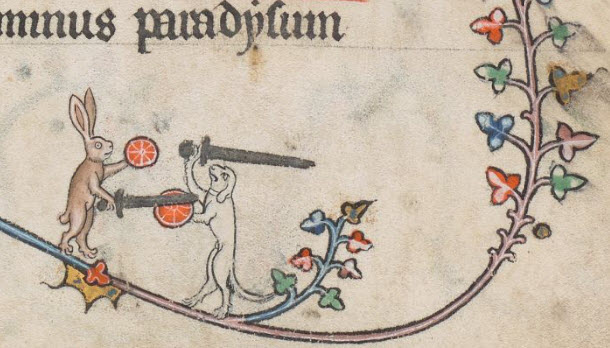 minus paradysum